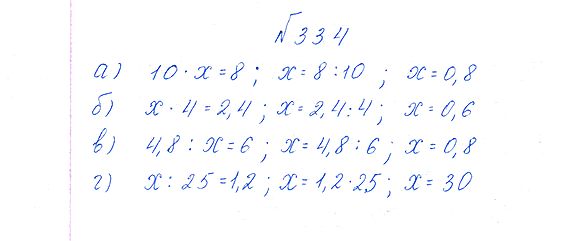 №334
а) 10 · x = 8 ; x = 8 : 10 ; x = 0,8
б) x · 4 = 2,4 ; x = 2,4 : 4 ; x = 0,6
в) 4,8 : x = 6 ; x = 4,8 : 6 ; x = 0,8
г) x : 25 = 1,2 ; x = 1,2 · 25 ; x = 30